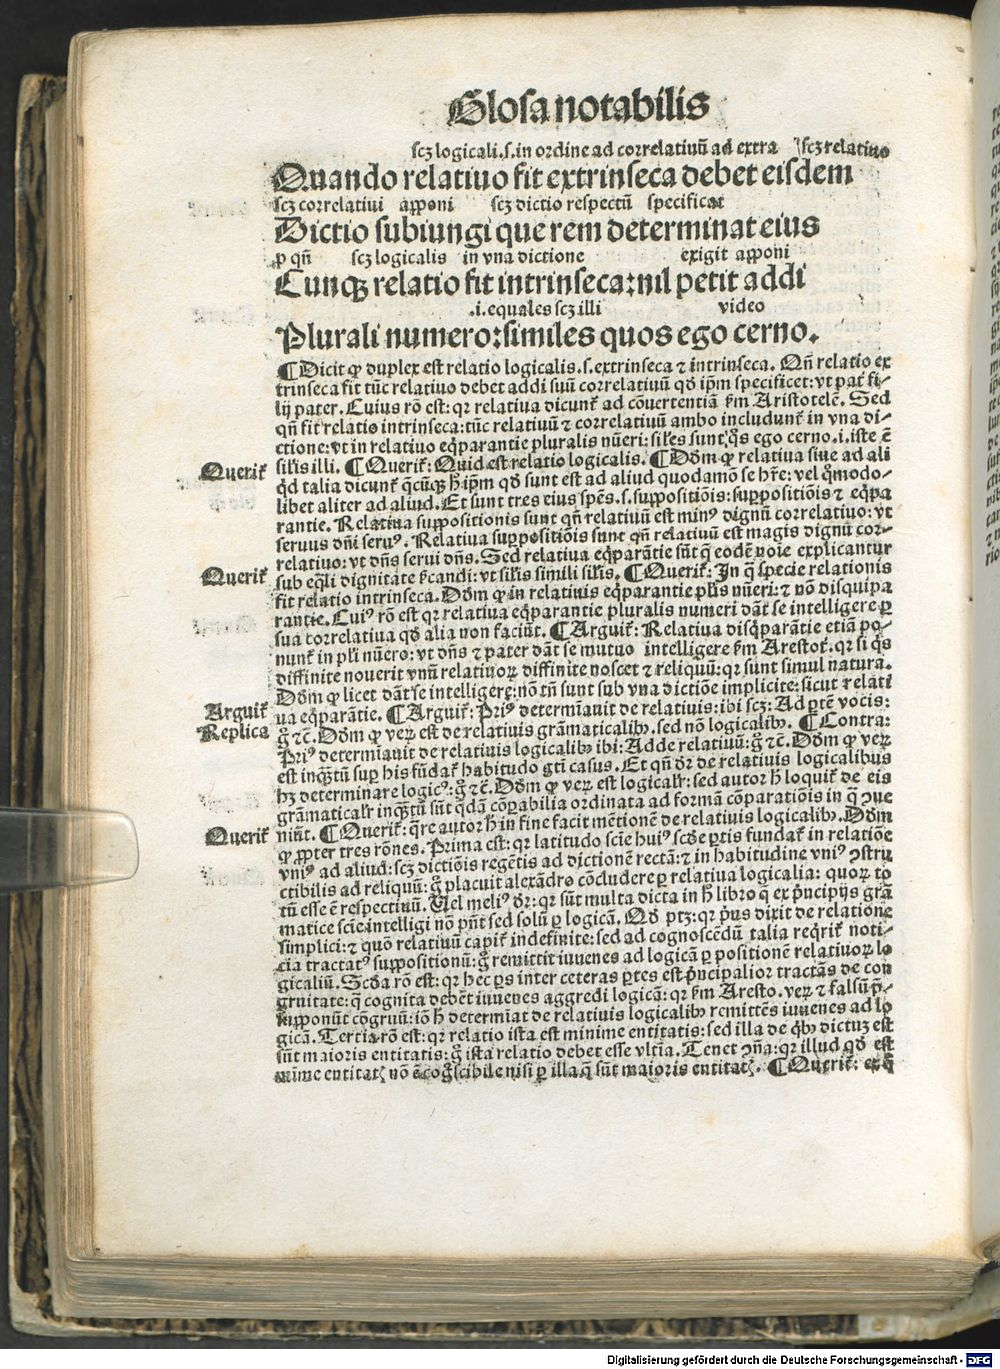 Glosa notabilis
scꝫ logicali .s. in ordine ad correlatiuũ ad extra scꝫ relatiuo
Quando relatiuo fit extrinseca debet eisdem
scꝫ correlatiui apponi scꝫ dictio respectũ specificat
Dictio subiungi que rem determinat eius
p qñ scꝫ logicalis in vna dictione exigit apponi
Cunqꝫ relatio fit intrinseca: nil petit addi
.i. equales scꝫ illi video
Plurali numero: similes quos ego cerno.
¶ Dicit ꝙ duplex est relatio logicalis .s. extrinseca ⁊ intrinseca. Qñ relatio ex
trinseca fit tũc relatiuo debet addi suũ correlatiuũ qd̓ ip̃m specificet: vt pat̃ fi-
lij pater. Cuius rõ est: qr relatiua dicunt̃ ad cõuertentiã ẜm Aristotelẽ. Sed
qñ fit relatio intrinseca: tũc relatiuũ ⁊ correlatiuũ ambo includunt̃ in vna di-
ctione: vt in relatiuo eq̃parantie pluralis nũeri: siles sunt q̃s ego cerno .i. iste ẽ
Querit̃ silis illi. ¶ Querit̃: Quid est relatio logicalis. ¶ Dõm ꝙ relatiua siue ad ali
qd̓ talia dicunt̃ q̃cũqꝫ h̃ ip̃m qd̓ sunt est ad aliud quodãmõ se hr̃e: vel q̃modo-
libet aliter ad aliud. Et sunt tres eius sp̃es .s. suppositiõis: suꝑpositiõis ⁊ eq̃pa
rantie. Relatiua suppositionis sunt qñ relatiuũ est minꝰ dignũ correlatiuo: vt
seruus dñi seruꝰ. Relatiua suꝑpositiõis sunt qñ relatiuũ est magis dignũ cor-
relatiuo: vt dñs serui dñs. Sed relatiua eq̃parãtie sũt q̃ eodẽ noie explicantur
Querit̃ sub eq̃li dignitate p̃candi: vt silis simili silis. ¶ Querit̃: In q̃ specie relationis
fit relatio intrinseca. Dõm ꝙ in relatiuis eq̃parantie plis nũeri: ⁊ nõ disquipa
rantie. Cuiꝰ rõ est qr relatiua eq̃parantie pluralis numeri dãt se intelligere ꝑ
sua correlatiua qd̓ alia non faciũt. ¶ Arguit̃: Relatiua disq̃parãtie etiã po-
nunt̃ in pli nũero: vt dñs ⁊ pater dãt se mutuo intelligere ẜm Arestot̃. qr si q̃s
diffinite nouerit vnũ relatiuoꝝ diffinite noscet ⁊ reliquũ: qr sunt simul natura.
Dõm ꝙ licet dãt se intelligere: nõ tñ sunt sub vna dictiõe implicite: sicut relati
Arguit̃ ua eq̃parãtie. ¶ Arguit̃: Priꝰ determiãuit de relatiuis: ibi scꝫ: Ad ꝑtẽ vocis:
Replica g̃ ⁊c̃. Dõm ꝙ veꝝ est de relatiuis grãmaticalibꝫ. sed nõ logicalibꝫ. ¶ Contra:
Priꝰ determiãuit de relatiuis logicalibꝫ ibi: Adde relatiuũ: g̃ ⁊c̃. Dõm ꝙ veꝝ
est inq̃tũ suꝑ his fũdat̃ habitudo gt̃i casus. Et qñ dr̃ de relatiuis logicalibus
hꝫ determinare logicꝰ: g̃ ⁊c̃. Dõm ꝙ veꝝ est logicalr̃: sed autor h̃ loquit̃ de eis
grãmaticalr̃ inq̃tũ sũt q̃dã cõꝑabilia ordinata ad formã cõparatiõis in q̃ ꝯue
Querit̃ niũt. ¶ Querit̃: q̃re autor h̃ in fine facit mẽtionẽ de relatiuis logicalibꝫ. Dõm
ꝙ ꝓpter tres rõnes. Prima est: qr latitudo scie huiꝰ scd̓e ꝑtis fundat̃ in relatiõe
vniꝰ ad aliud: scꝫ dictiõis regẽtis ad dictionẽ rectã: ⁊ in habitudine vniꝰ ꝯstru
ctibilis ad reliquũ: g̃ placuit alexãdro cõcludere ꝑ relatiua logicalia: quoꝝ to
tũ esse ẽ respectiuũ. Uel meliꝰ dr̃: qr sũt multa dicta in h̃ libro q̃ ex p̃ncipijs grã
matice scie intelligi nõ pñt sed solũ ꝑ logicã. Qd̓ ptꝫ: qr p̃us dixit de relatione
simplici: ⁊ quõ relatiuũ capit̃ indefinite: sed ad cognoscẽdũ talia req̃rit̃ noti-
cia tractatꝰ suppositionũ: g̃ remittit iuuenes ad logicã ꝑ positionẽ relatiuoꝝ lo
gicaliũ. Scd̓a rõ est: qr hec ꝑs inter ceteras ꝑtes est p̃ncipalior tractãs de con
gruitate: q̃ cognita debẽt iuuenes aggredi logicã: qr ẜm Aresto. veꝝ ⁊ falsũ p̃-
supponũt cõgruũ: iõ h̃ determiãt de relatiuis logicalibꝫ remittẽs iuuenes ad lo
gicã. Tertia rõ est: qr relatio ista est minime entitatis: sed illa de q̃bꝫ dictuꝫ est
sũt maioris entitatis: g̃ ista relatio debet esse vltĩa. Tenet ꝯña: qr illud qd̓ est
minime entitatꝭ nõ ẽ cog̃scibile nisi ꝑ illa q̃ sũt maioris entitatꝭ. ¶ Querit̃: ex q̃
Digitalisierung gefördert durch die Deutsche Forschungsgemeinschaft - DFG